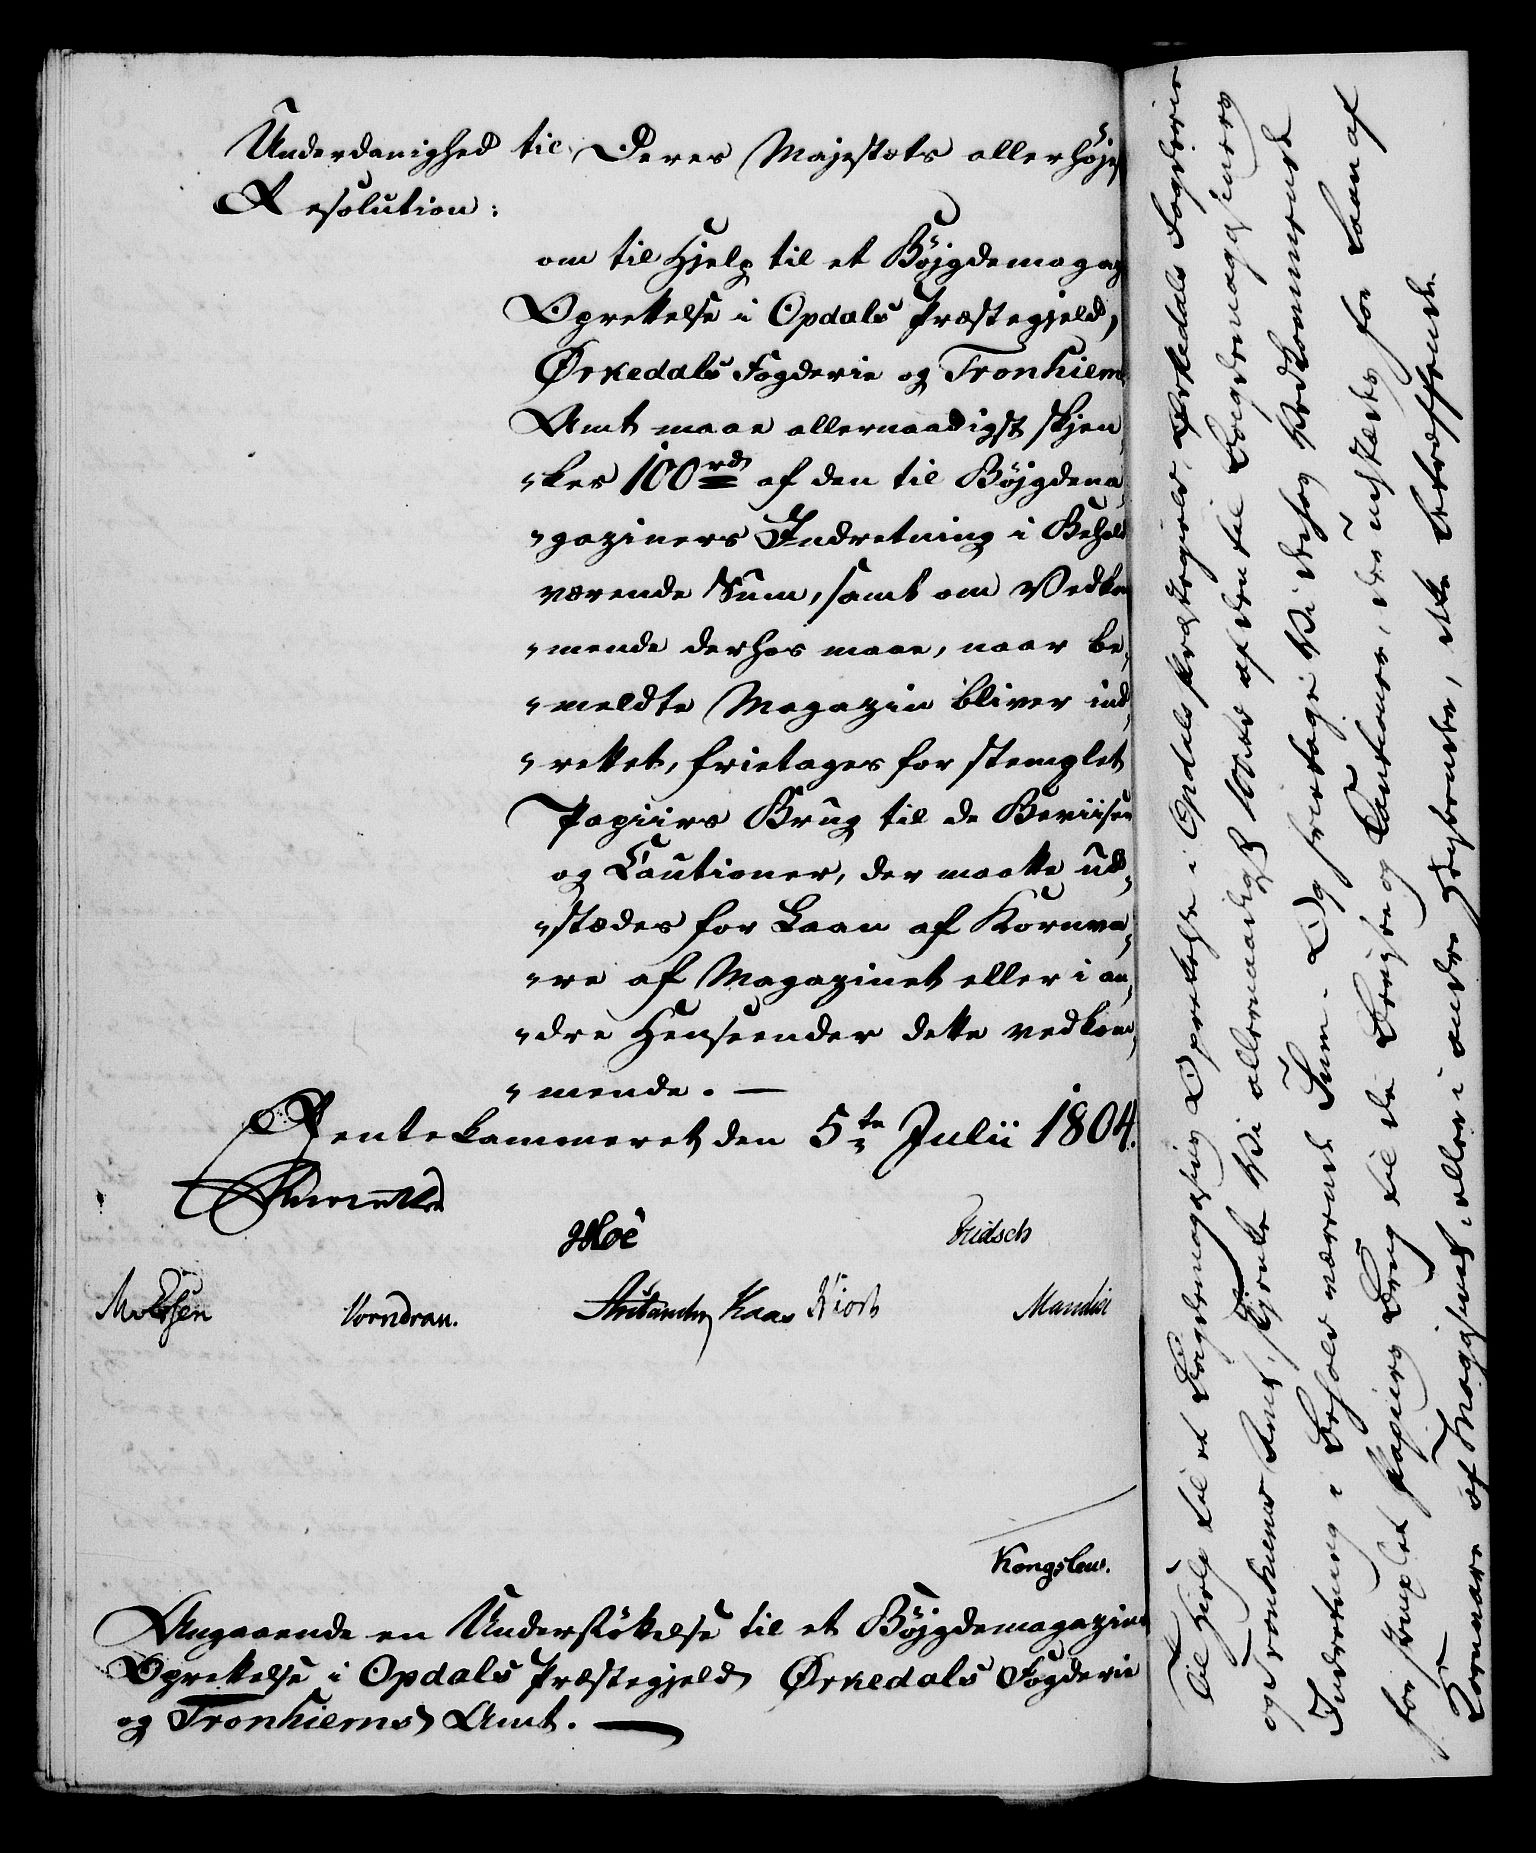 Underdanighed til Deres Majestæts allerhøje
Resolution:
om til Hjelp til et Böjgdemagaz
Oprettelse i Opdals Præstegjeld,
Ørkedals Fogderie og Tronhiems
Amt maae allernaadigst skjen-
"kes 100 rd af den til Böjgdema-
"gaziners Indretning i Behold
værende Sum, samt om Vedkom
"mende derhos maae, naar be-
"meldte Magazin bliver ind-
"rettet, frietages for stemplet
Papiirs Brug til de Beviiser
og Cautioner, der maatte ud-
"stædes for Laan af Kornva-
"re af Magazinet eller i an-
"dre Henseender dette vedkom-
"mende. —
Rentekammeret den 5te Julii 1804.
Hoë
Fridsch
Vorndran.
Kaas
Kiøch
Kongslew.
Angaaende en Understöttelse til et Böjgdemagazins
Oprettelse i Opdals Præstegjeld Ørkedals Fogderie
og Tronhiems Amt. —
Til Hjelp til et Bøigdemagazins Oprettelse i Opdals Præstegield, Ørkedals Fogderie
og Tronhiems Amt, skjenke Vi allernaadigst 100 rd af den til Bøigdemagaziners
Indretning i Behold værende Sum. Og fritage Vi derhos Vedkommende
for stemplet Papiirs Brug til de Beviise og Cautioner, der udstædes for Laan af
Kornvare af Magazinet, eller i andre Henseender, dette betræffende.